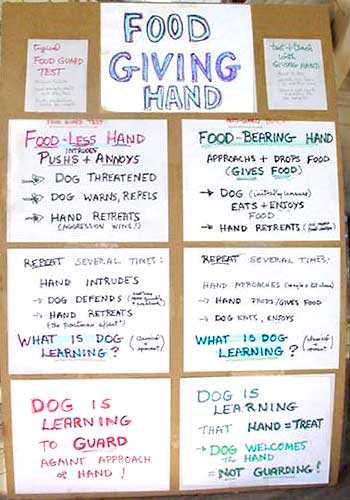 FOOD
GIVING
HAND
typical
FOOD GUARD
TEST
test + teach
with
GIVING HAND
FOOD GUARD TEST
FOOD-LESS HAND
INTRUDES
PUSHS + ANNOYS
→ DOG THREATENED
→ DOG WARNS, REPELS
→ HAND RETREATS
(AGGRESSION WINS!)
FOOD-BEARING HAND
APPROACHS + DROPS FOOD
(GIVES FOOD)
→ DOG (initially unsure)
EATS + ENJOYS
FOOD
→ HAND RETREATS
REPEAT SEVERAL TIMES:
HAND INTRUDES
→ DOG DEFENDS
→ HAND RETREATS
(the postman effect")
WHAT IS DOG
LEARNING? (classical + operant)
REPEAT SEVERAL TIMES:
HAND APROACHES
→ HAND DROPS/GIVES FOOD
→ DOG EATS, ENJOYS
WHAT IS DOG
LEARNING? (classical + operant)
DOG IS
LEARNING
TO GUARD
AGAINT APPROACH
OF HAND!
DOG IS
LEARNING
THAT HAND = TREAT
→ DOG WELCOMES
THE HAND
= NOT GUARDING!